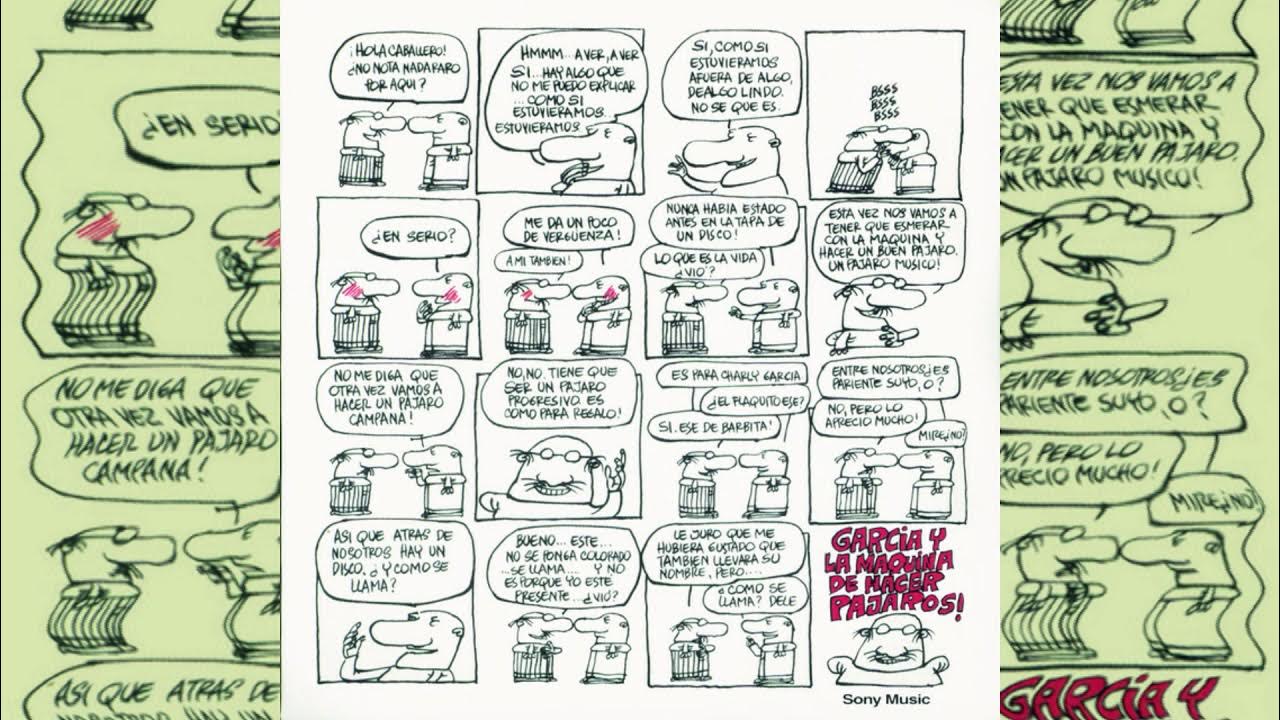 ¡HOLA CABALLERO!
¿NO NOTA NADA RARO
POR AQUI?
HMMM...A VER, A VER
SI...HAY ALGO QUE
NO ME PUEDO EXPLICAR
...COMO SI
ESTUVIERAMOS
ESTUVIERAMOS
SI, COMO SI
ESTUVIERAMOS
AFUERA DE ALGO,
DE ALGO LINDO.
NO SE QUE ES.
BSSS
BSSS
BSSS
¿EN SERIO?
ME DA UN POCO
DE VERGUENZA!
A MI TAMBIEN!
NUNCA HABIA ESTADO
ANTES EN LA TAPA DE
UN DISCO!
LO QUE ES LA VIDA
¿VIO?
ESTA VEZ NOS VAMOS A
TENER QUE ESMERAR
CON LA MAQUINA Y
HACER UN BUEN PAJARO.
UN PAJARO MUSICO!
NO ME DIGA QUE
OTRA VEZ VAMOS A
HACER UN PAJARO
CAMPANA!
NO, NO. TIENE QUE
SER UN PAJARO
PROGRESIVO. ES
COMO PARA REGALO!
ES PARA CHARLY GARCIA
¿EL FLAQUITO ESE?
SI. ESE DE BARBITA!
ENTRE NOSOTROS ¿ES
PARIENTE SUYO, O?
NO, PERO LO
APRECIO MUCHO!
MIRE ¿NO?
ASI QUE ATRAS DE
NOSOTROS HAY UN
DISCO. ¿Y COMO SE
LLAMA?
BUENO... ESTE...
NO SE PONGA COLORADO
...SE LLAMA.... Y NO
ES PORQUE YO ESTE
PRESENTE...¿VIO?
LE JURO QUE ME
HUBIERA GUSTADO QUE
TAMBIEN LLEVARA SU
NOMBRE, PERO....
¿COMO SE
LLAMA? DELE
GARCIA Y
LA MAQUINA
DE HACER
PAJAROS!
Sony Music
¿EN SERIO
NO ME DIGA QUE
OTRA VEZ VAMOS A
HACER UN PAJARO
CAMPANA!
ASI QUE ATRAS DE
ESTA VEZ NOS VAMOS A
TENER QUE ESMERAR
CON LA MAQUINA Y
ACER UN BUEN PAJARO.
UN PAJARO MUSICO!
ENTRE NOSOTROS ¿ES
PARIENTE SUYO, O?
NO, PERO LO
PRECIO MUCHO!
MIRE ¿NO?
GARCIA Y